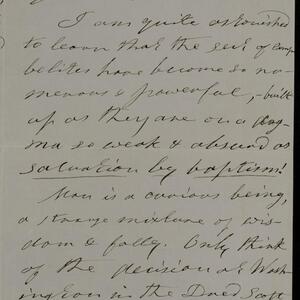 I am quite astonished
to learn that the sect of Camp
belites have become so nu-
merous & powerful, - built
up as they are on a dog-
ma so weak & absurd as
salvation by baptism!
Man is a curious being,
a strange mixture of wis-
dom & folly. Only think
of the decision at Wash-
ington in the Dred Scott